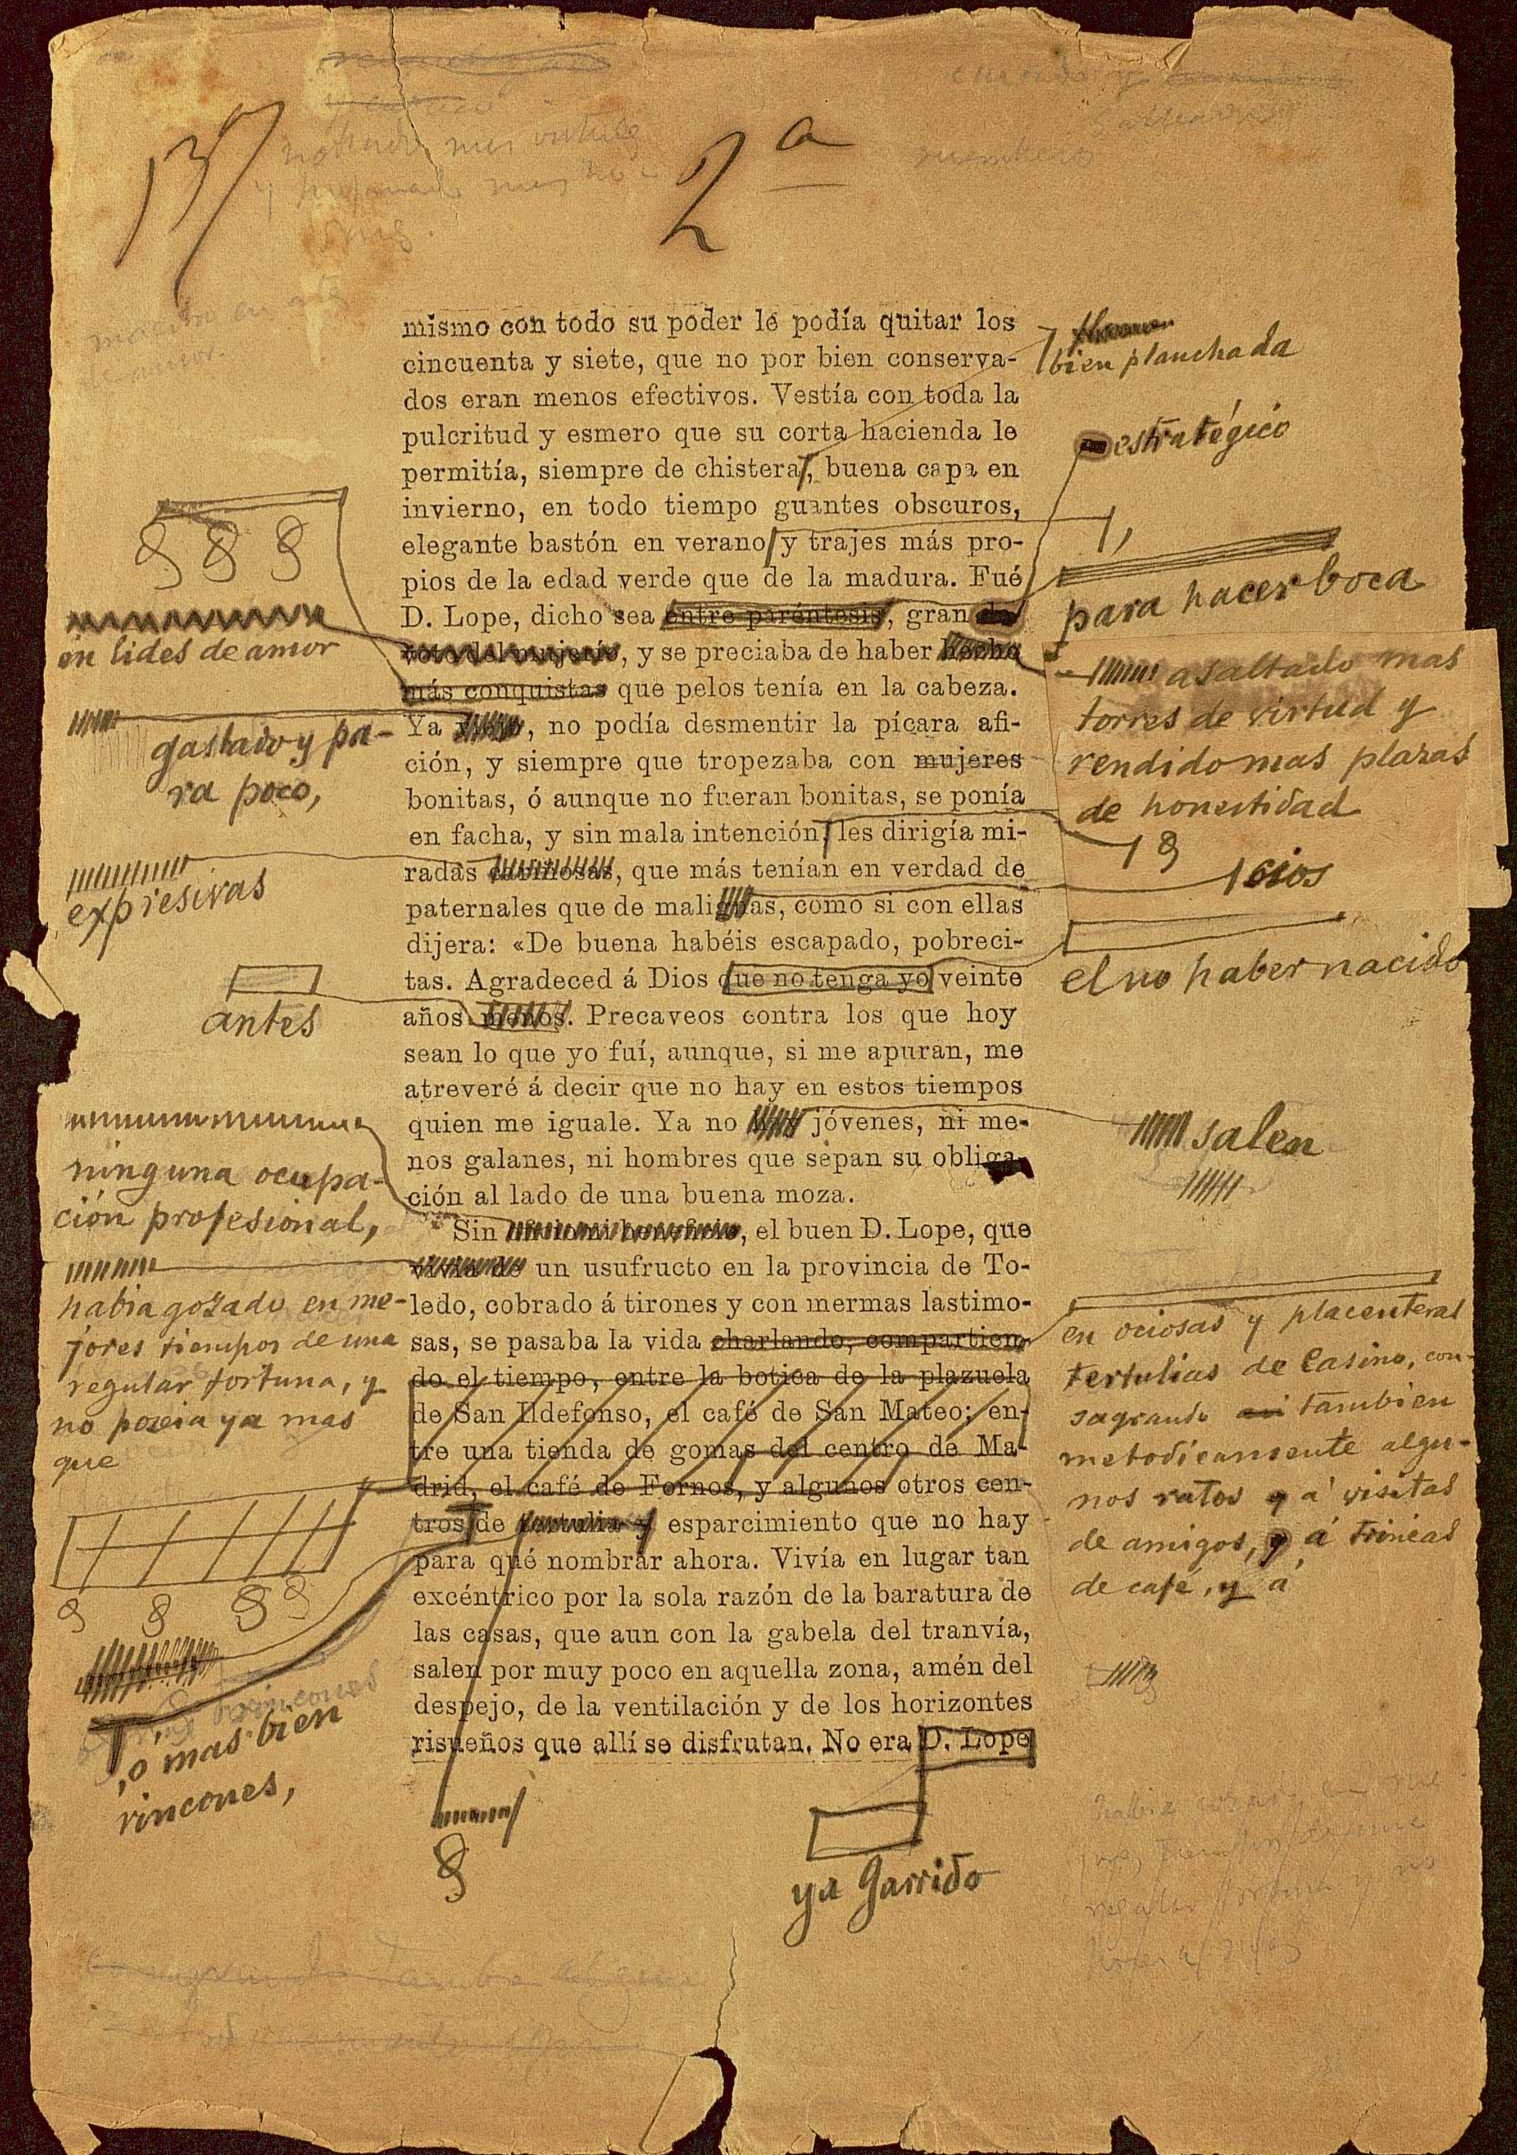 13
2ª
mismo con todo su poder le podía quitar los
cincuenta y siete, que no por bien conserva-
dos eran menos efectivos. Vestía con toda la
pulcritud y esmero que su corta hacienda le
permitía, siempre de chistera, buena capa en
invierno, en todo tiempo guantes obscuros,
elegante bastón en verano y trajes más pro-
pios de la edad verde que de la madura. Fué
D. Lope, dicho sea entre paréntesis, gran de-
voto del mujerío, y se preciaba de haber hecho
más conquistas que pelos tenía en la cabeza.
Ya , no podía desmentir la pícara afi-
ción, y siempre que tropezaba con mujeres
bonitas, ó aunque no fueran bonitas, se ponía
en facha, y sin mala intención, les dirigía mi-
radas cariñosas, que más tenían en verdad de
paternales que de malignas, como si con ellas
dijera: «De buena habéis escapado, pobreci-
tas. Agradeced á Dios que no tenga yo veinte
años menos. Precaveos contra los que hoy
sean lo que yo fuí, aunque, si me apuran, me
atreveré á decir que no hay en estos tiempos
quien me iguale. Ya no jóvenes, ni me-
nos galanes, ni hombres que sepan su obliga-
ción al lado de una buena moza.
Sin oficio ni beneficio, el buen D. Lope, que
vivía de un usufructo en la provincia de To-
ledo, cobrado á tirones y con mermas lastimo-
sas, se pasaba la vida charlando, compartien-
do el tiempo, entre la botica de la plazuela
de San Ildefonso, el café de San Mateo; en-
tre una tienda de gomas del centro de Ma-
drid, el café de Fornos, y algunos otros cen-
tros de tertulia y esparcimiento que no hay
para qué nombrar ahora. Vivía en lugar tan
excéntrico por la sola razón de la baratura de
las casas, que aun con la gabela del tranvía,
salen por muy poco en aquella zona, amén del
despejo, de la ventilación y de los horizontes
risueños que allí se disfrutan. No era D. Lope
en lides de amor
gastado y pa-
ra poco,
expresivas
antes
ninguna ocupa-
ción profesional,
habia gozado en me-
jores tiempos de una
regular fortuna, y
no poseia ya mas
que
ó mas bien
rincones,
bien planchada
estratégico
para hacer boca
asaltado mas
torres de virtud y
rendido mas plazas
de honestidad
cios
el no haber nacido
salen
en ociosas y placenteras
tertulias de Casino, con-
sagrando tambien
metodicamente algu-
nos ratos y á visitas
de amigos, y á trincas
de café, y á
ya Garrido